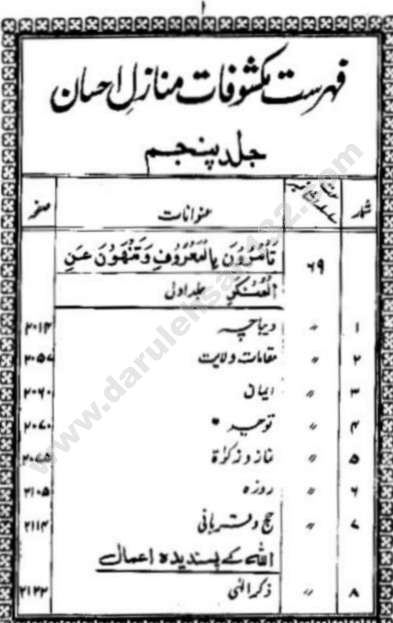 ۱
فہرست مکشوفات منازلِ احسان
جلد پنجم
شمار عنوانات صفحہ
۶۹ تَأْمُرُونَ بِالْمَعْرُوفِ وَتَنْهَوْنَ عَنِ
الْمُنْكَرِ جلد اول
۱ ״ دیباچہ ۲۰۱۳
۲ ״ مقامات ولایت ۲۰۵۷
۳ ״ ایمان ۲۰۶۰
۴ ״ توحید ۲۰۷۰
۵ ״ نماز و زکوٰۃ ۲۰۷۵
۶ ״ روزہ ۲۱۰۵
۷ ״ حج و قربانی ۲۱۱۴
اللہ کے پسندیدہ اعمال
۸ ״ ذکر الٰہی ۲۱۲۲